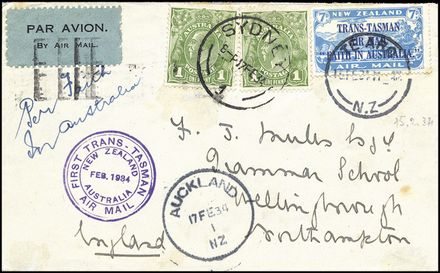 PAR AVION.
BY AIR MAIL.
Per Faith
In Australia
AUSTRALIA
1 1
1 1
SYDNEY
NEW ZEALAND
7D
TRANS-TASMAN
AIR MAIL
"FAITH IN AUSTRALIA."
AIR MAIL
N.Z
15.2.34
FIRST TRANS-TASMAN
AIR MAIL
NEW ZEALAND
FEB. 1934
AUSTRALIA
AUCKLAND
17 FE 34
1
NZ
F. J. Esq
Grammar School
Wellingborough
Northampton
England